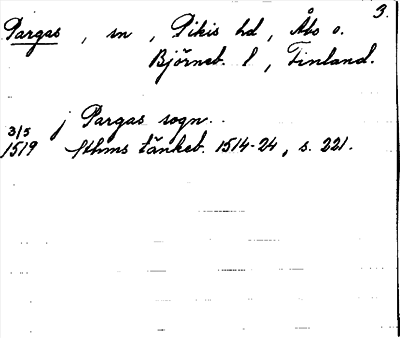 3.
Pargas, sn, Pikis hd, Åbo o.
Björneb. l, Finland.
j Pargas sogn.
3/5
1519 Sthms tänkeb. 1514-24, s. 221.